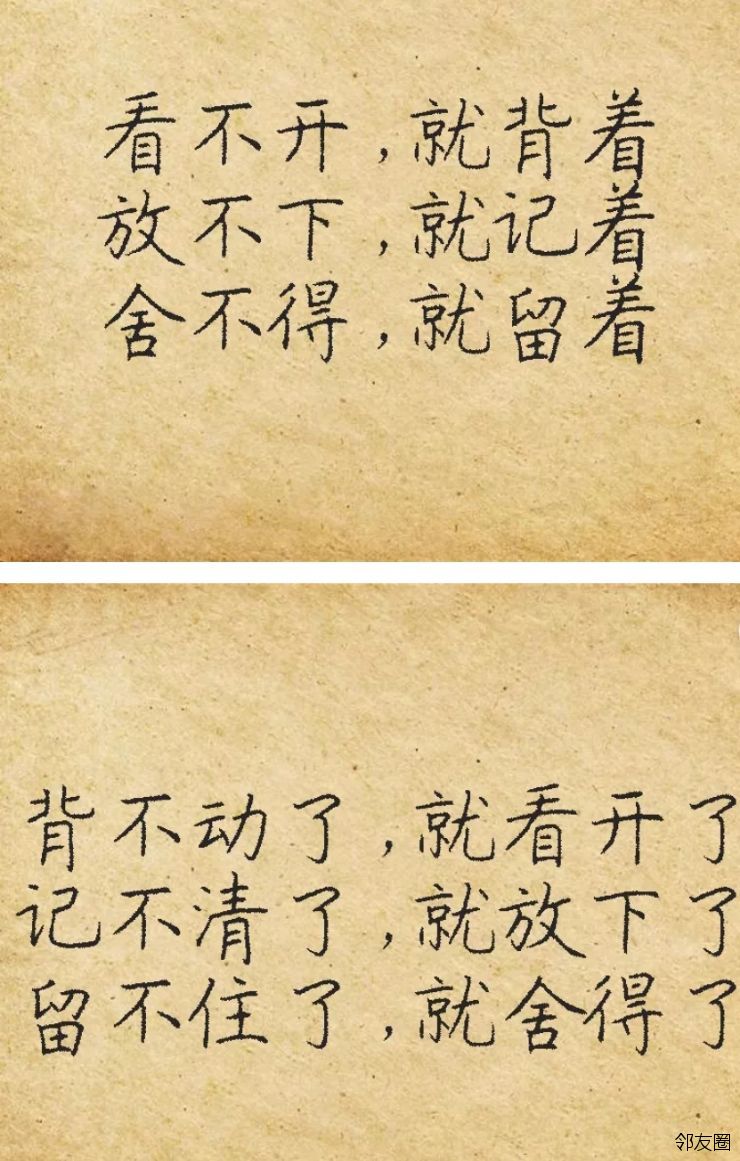 看不开，就背着
放不下，就记着
舍不得，就留着
背不动了，就看开了
记不清了，就放下了
留不住了，就舍得了
邻友圈